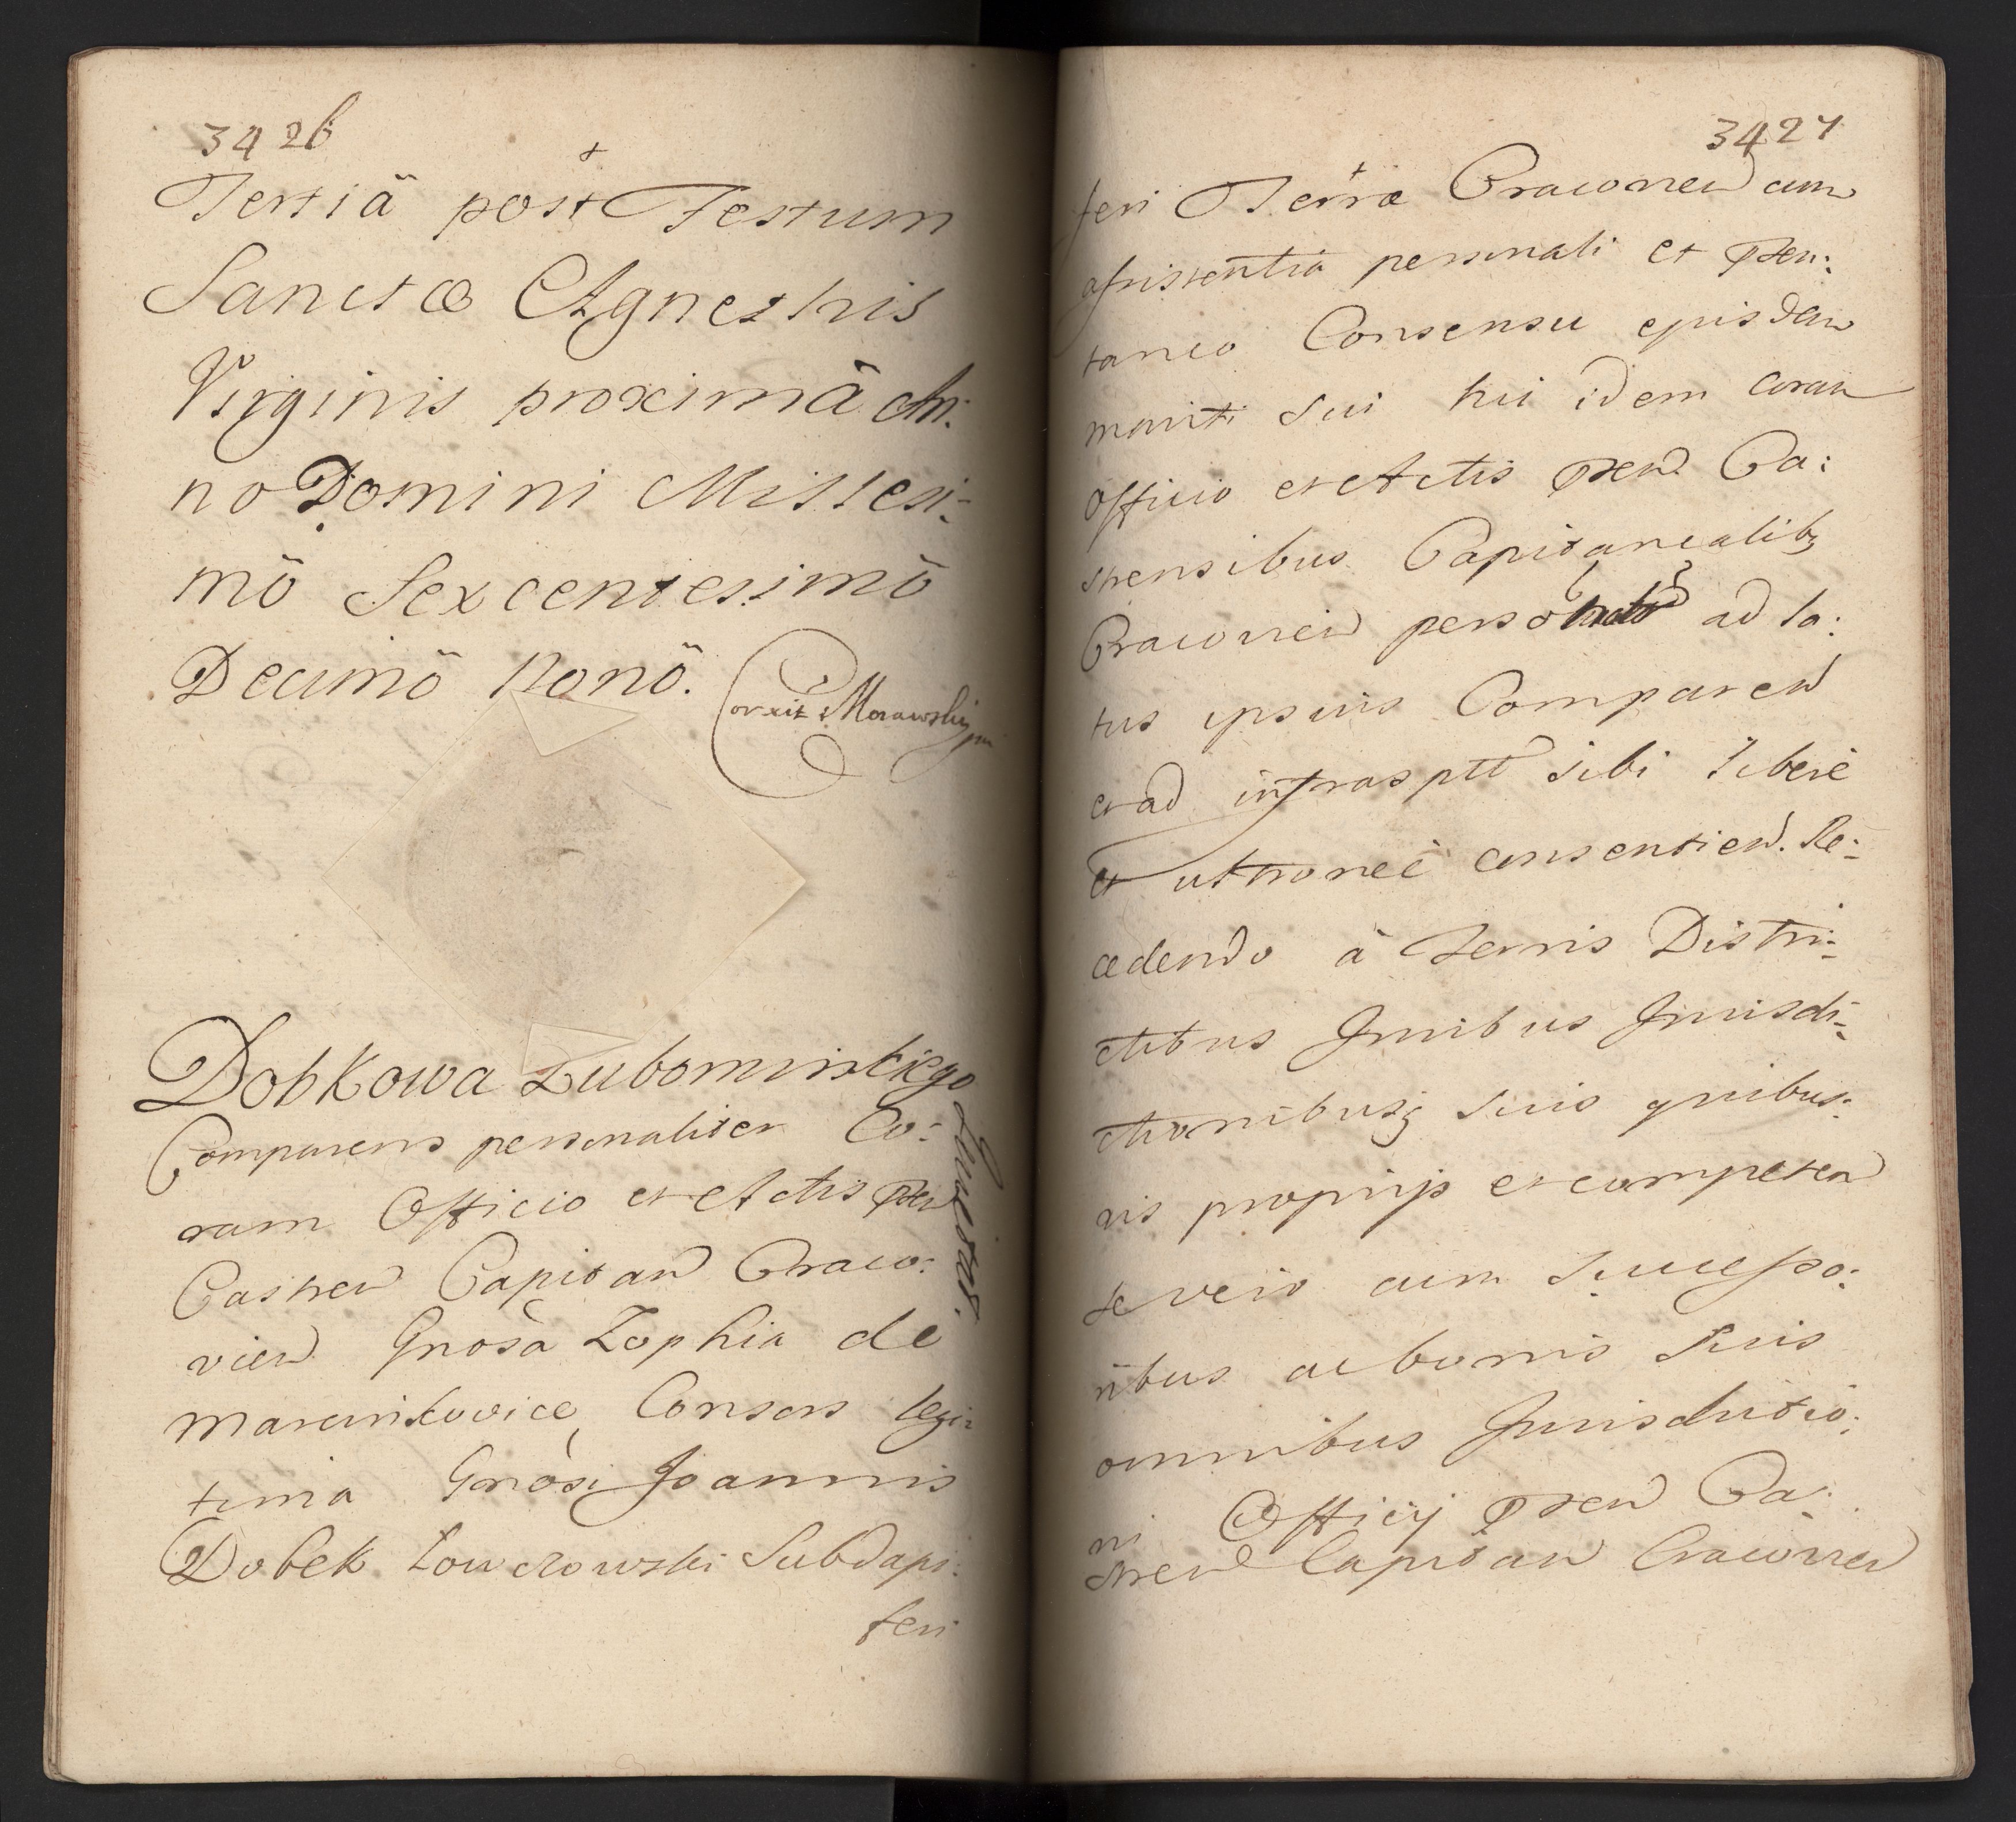 3426
Tertiä post Festum
Sanctæ Agnethis
Virginis proximä An:
no Domini Millesi:
mö Sexcentesimö
Decimö Nonö.
Corrit Morawskj mp
Dobkowa Lubomirskiego
Investit.
Comparens personaliter Co:
ram Officio et Actis pñ
Castren Capitan Craco:
vien Gnosa Zophia de
Marcinkovice Consors legi:
tima Gnosi Joannis
Dobek Łowczowski Subdapi:
feri
3427
feri Terræ Cracovien cum
assistentia personali et spon:
taneo Consensu ejusdem
mariti sui hic idem coram
Officio et Actis pñ Ca:
strensibus Capitanealibq
Cracovien perso ad la:
tus ipsius Comparen
et ad infrasptt sibi liberè
et ultroneè consentien. Re:
cedendo à Terris Distri:
ctibus Juribus Jurisdi:
ctionibusq suis quibus:
vis proprijs et competen
se vero cum Successo:
ribus ac bonis suis
omnibus Jurisdictio:
ni Officij pñ Ca:
stren Capitan Cracovien